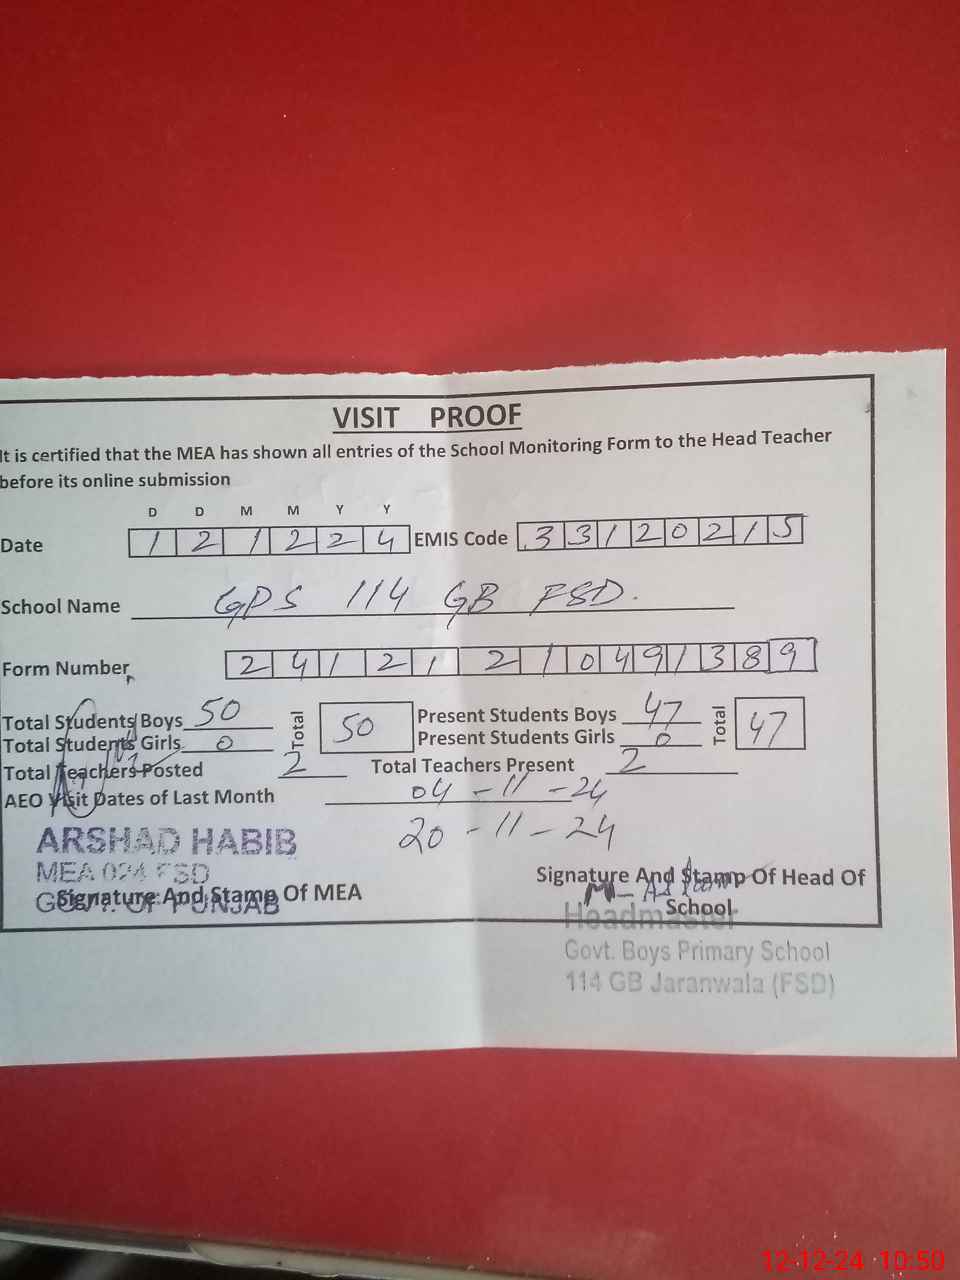 VISIT PROOF
It is certified that the MEA has shown all entries of the School Monitoring Form to the Head Teacher
before its online submission
D D M M Y Y
Date 1 2 1 2 2 4 EMIS Code 3 3 1 2 0 2 1 5
School Name GPS 114 GB FSD.
Form Number 2 4 1 2 1 2 1 0 4 9 1 3 8 9
Total Students Boys 50 Total 50 Present Students Boys 47 Total 47
Total Students Girls 0 Present Students Girls 0
Total Teachers Posted 2 Total Teachers Present 2
AEO Visit Dates of Last Month 04-11-24
20-11-24
ARSHAD HABIB
MEA 024 FSD
GOVT. OF PUNJAB
Signature And Stamp Of MEA
Signature And Stamp Of Head Of
School
Headmaster
Govt. Boys Primary School
114 GB Jaranwala (FSD)
12-12-24 10:50